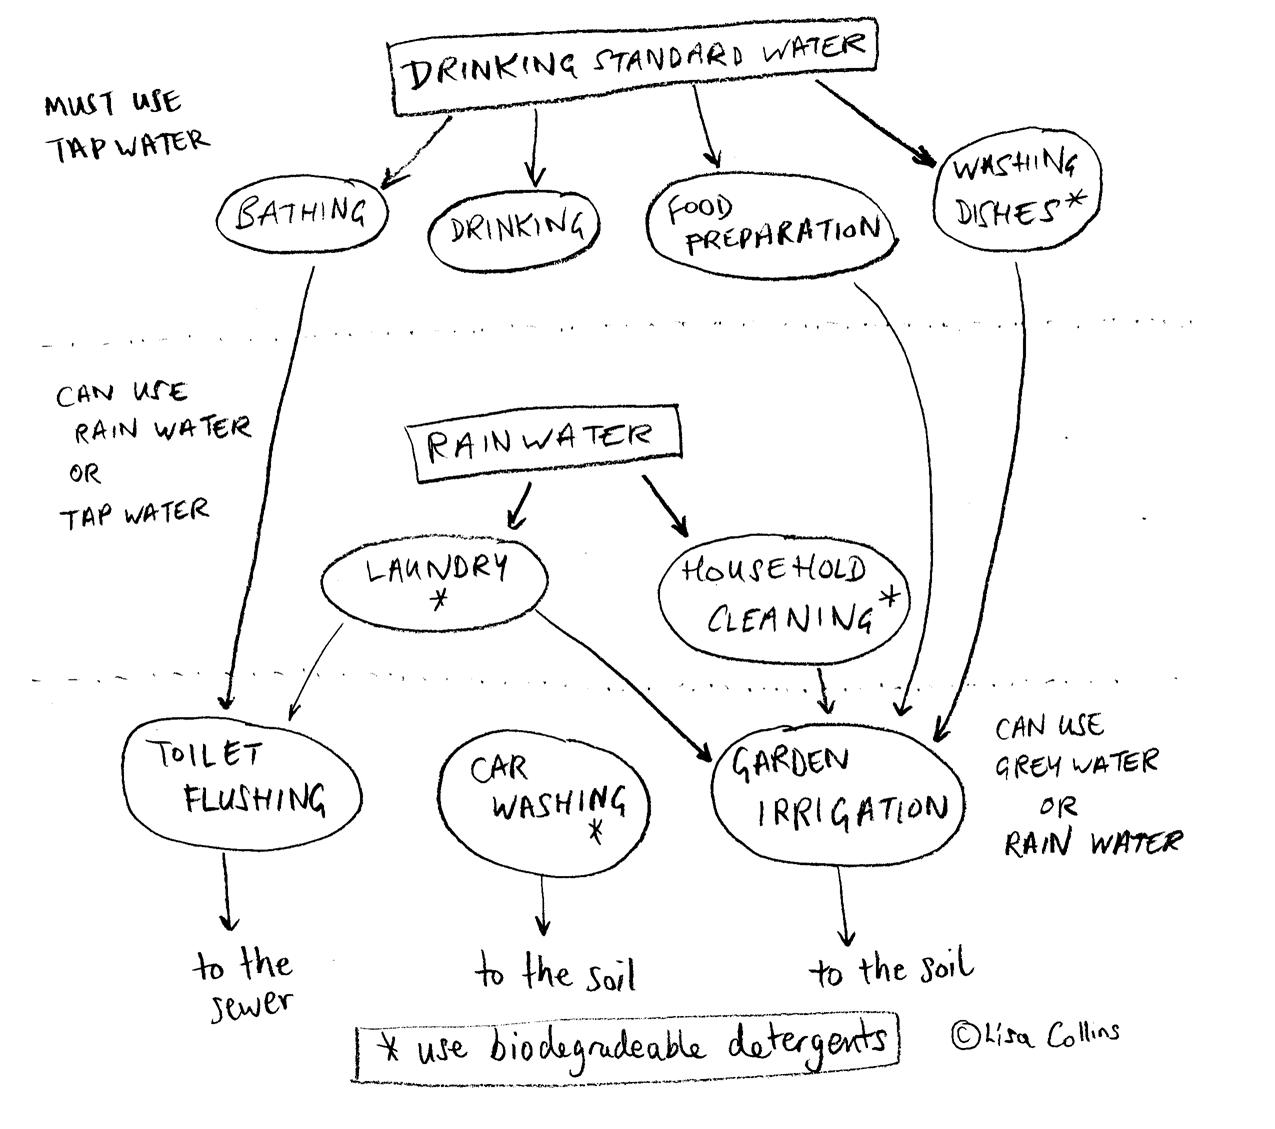 DRINKING STANDARD WATER
MUST USE
TAP WATER
BATHING
DRINKING
FOOD
PREPARATION
WASHING
DISHES*
CAN USE
RAIN WATER
OR
TAP WATER
RAINWATER
LAUNDRY
*
HOUSEHOLD
CLEANING*
TOILET
FLUSHING
CAR
WASHING
*
GARDEN
IRRIGATION
CAN USE
GREY WATER
OR
RAIN WATER
to the
sewer
to the soil
to the soil
* use biodegradeable detergents
©Lisa Collins